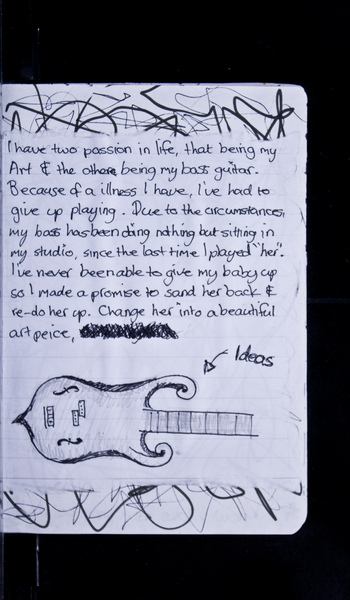 I have two passion in life, that being my
Art & the other being my bass guitar.
Because of a illness I have, I've had to
give up playing. Due to the circumstances,
my bass has been doing nothing but sitting in
my studio, since the last time I played "her".
I've never been able to give my baby up
so I made a promise to sand her back &
re-do her up. Change her into a beautiful
art peice,
Ideas